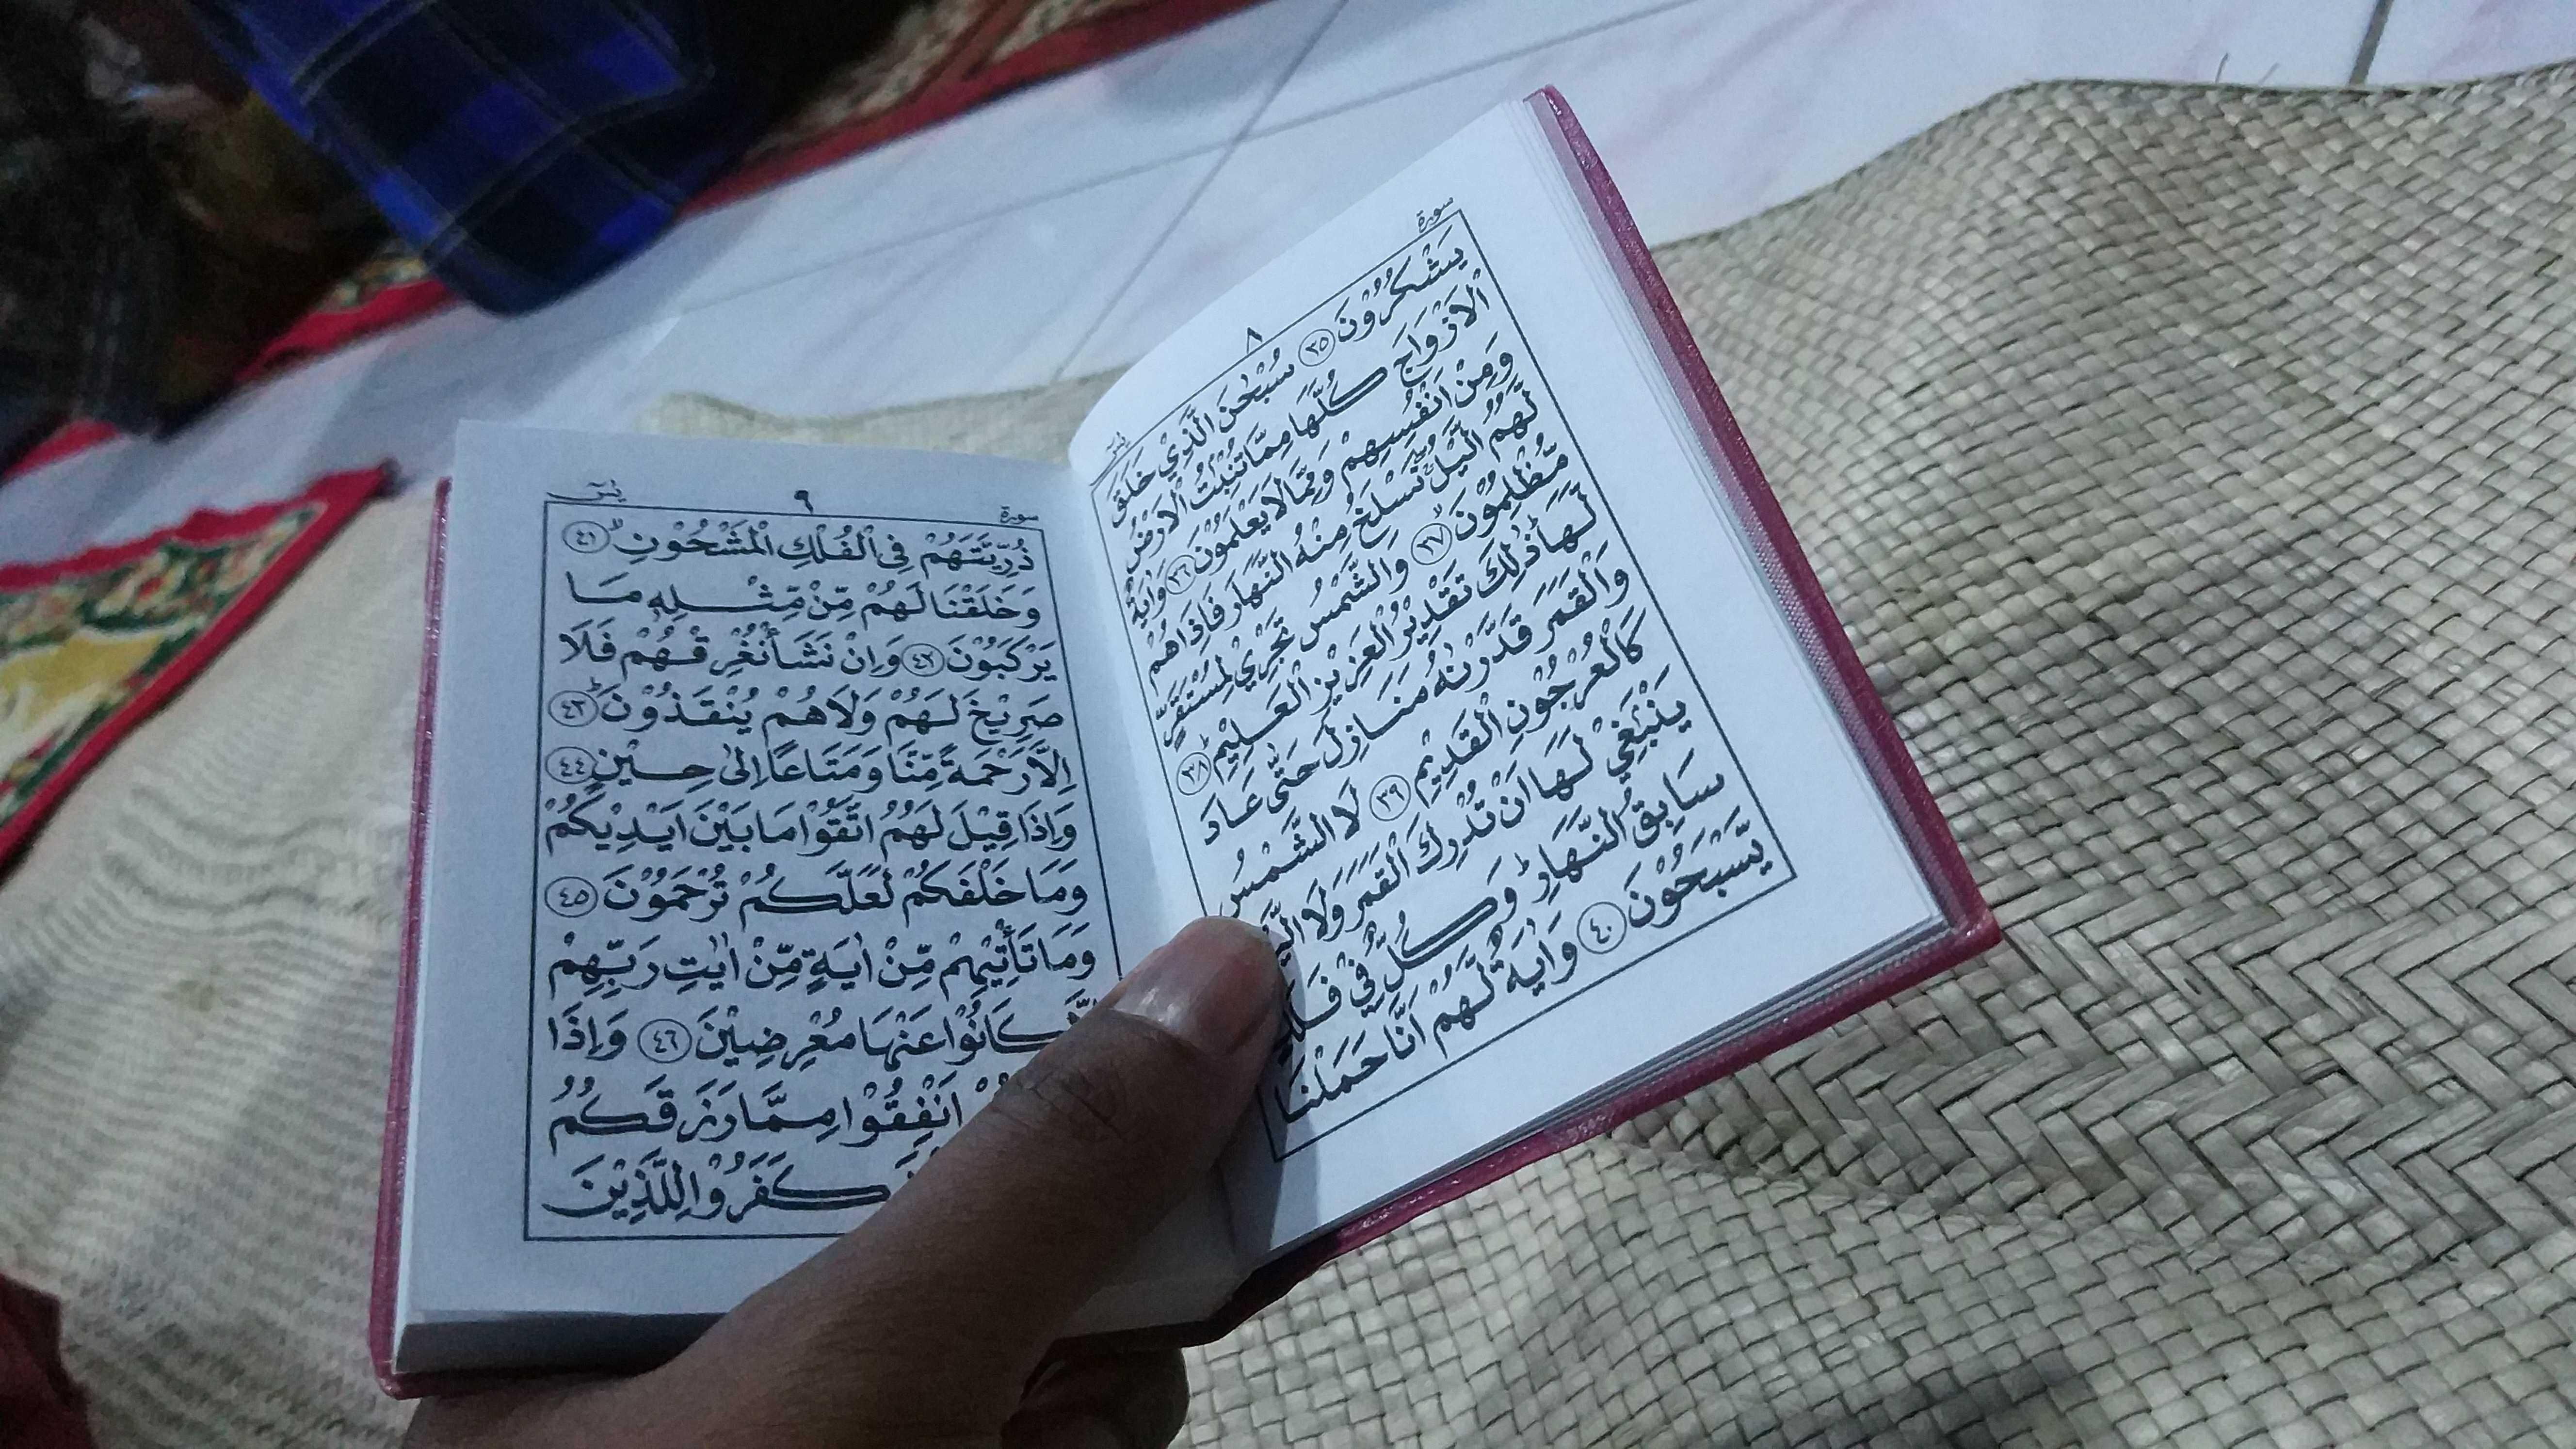 سورة ٨ يٰسٓ
يَشْكُرُوْنَ ﴿٣٥﴾ سُبْحٰنَ الَّذِيْ خَلَقَ
الْاَزْوَاجَ كُلَّهَا مِمَّا تُنْۢبِتُ الْاَرْضُ
وَمِنْ اَنْفُسِهِمْ وَمِمَّا لَا يَعْلَمُوْنَ ﴿٣٦﴾ وَاٰيَةٌ
لَهُمُ الَّيْلُ نَسْلَخُ مِنْهُ النَّهَارَ فَاِذَاهُمْ
مُّظْلِمُوْنَ ﴿٣٧﴾ وَالشَّمْسُ تَجْرِيْ لِمُسْتَقَرٍّ
لَهَا ذٰلِكَ تَقْدِيْرُ الْعَزِيْزِ الْعَلِيْمِ ﴿٣٨﴾
وَالْقَمَرَ قَدَّرْنٰهُ مَنَازِلَ حَتّٰى عَادَ
كَالْعُرْجُوْنِ الْقَدِيْمِ ﴿٣٩﴾ لَا الشَّمْسُ
يَنْۢبَغِيْ لَهَا اَنْ تُدْرِكَ الْقَمَرَ وَلَا
سَابِقُ النَّهَارِ وَكُلٌّ فِيْ
يَّسْبَحُوْنَ ﴿٤٠﴾ وَاٰيَةٌ لَّهُمْ اَنَّا حَمَلْنَا
سورة ٩ يٰسٓ
ذُرِّيَّتَهُمْ فِى الْفُلْكِ الْمَشْحُوْنِ ﴿٤١﴾
وَخَلَقْنَا لَهُمْ مِّنْ مِّثْلِهٖ مَا
يَرْكَبُوْنَ ﴿٤٢﴾ وَاِنْ نَشَأْ نُغْرِقْهُمْ فَلَا
صَرِيْخَ لَهُمْ وَلَا هُمْ يُنْقَذُوْنَ ﴿٤٣﴾
اِلَّا رَحْمَةً مِّنَّا وَمَتَاعًا اِلٰى حِيْنٍ ﴿٤٤﴾
وَاِذَا قِيْلَ لَهُمُ اتَّقُوْا مَا بَيْنَ اَيْدِيْكُمْ
وَمَا خَلْفَكُمْ لَعَلَّكُمْ تُرْحَمُوْنَ ﴿٤٥﴾
وَمَا تَأْتِيْهِمْ مِّنْ اٰيَةٍ مِّنْ اٰيٰتِ رَبِّهِمْ
كَانُوْا عَنْهَا مُعْرِضِيْنَ ﴿٤٦﴾ وَاِذَا
اَنْفِقُوْا مِمَّا رَزَقَكُمُ
كَفَرُوْا لِلَّذِيْنَ